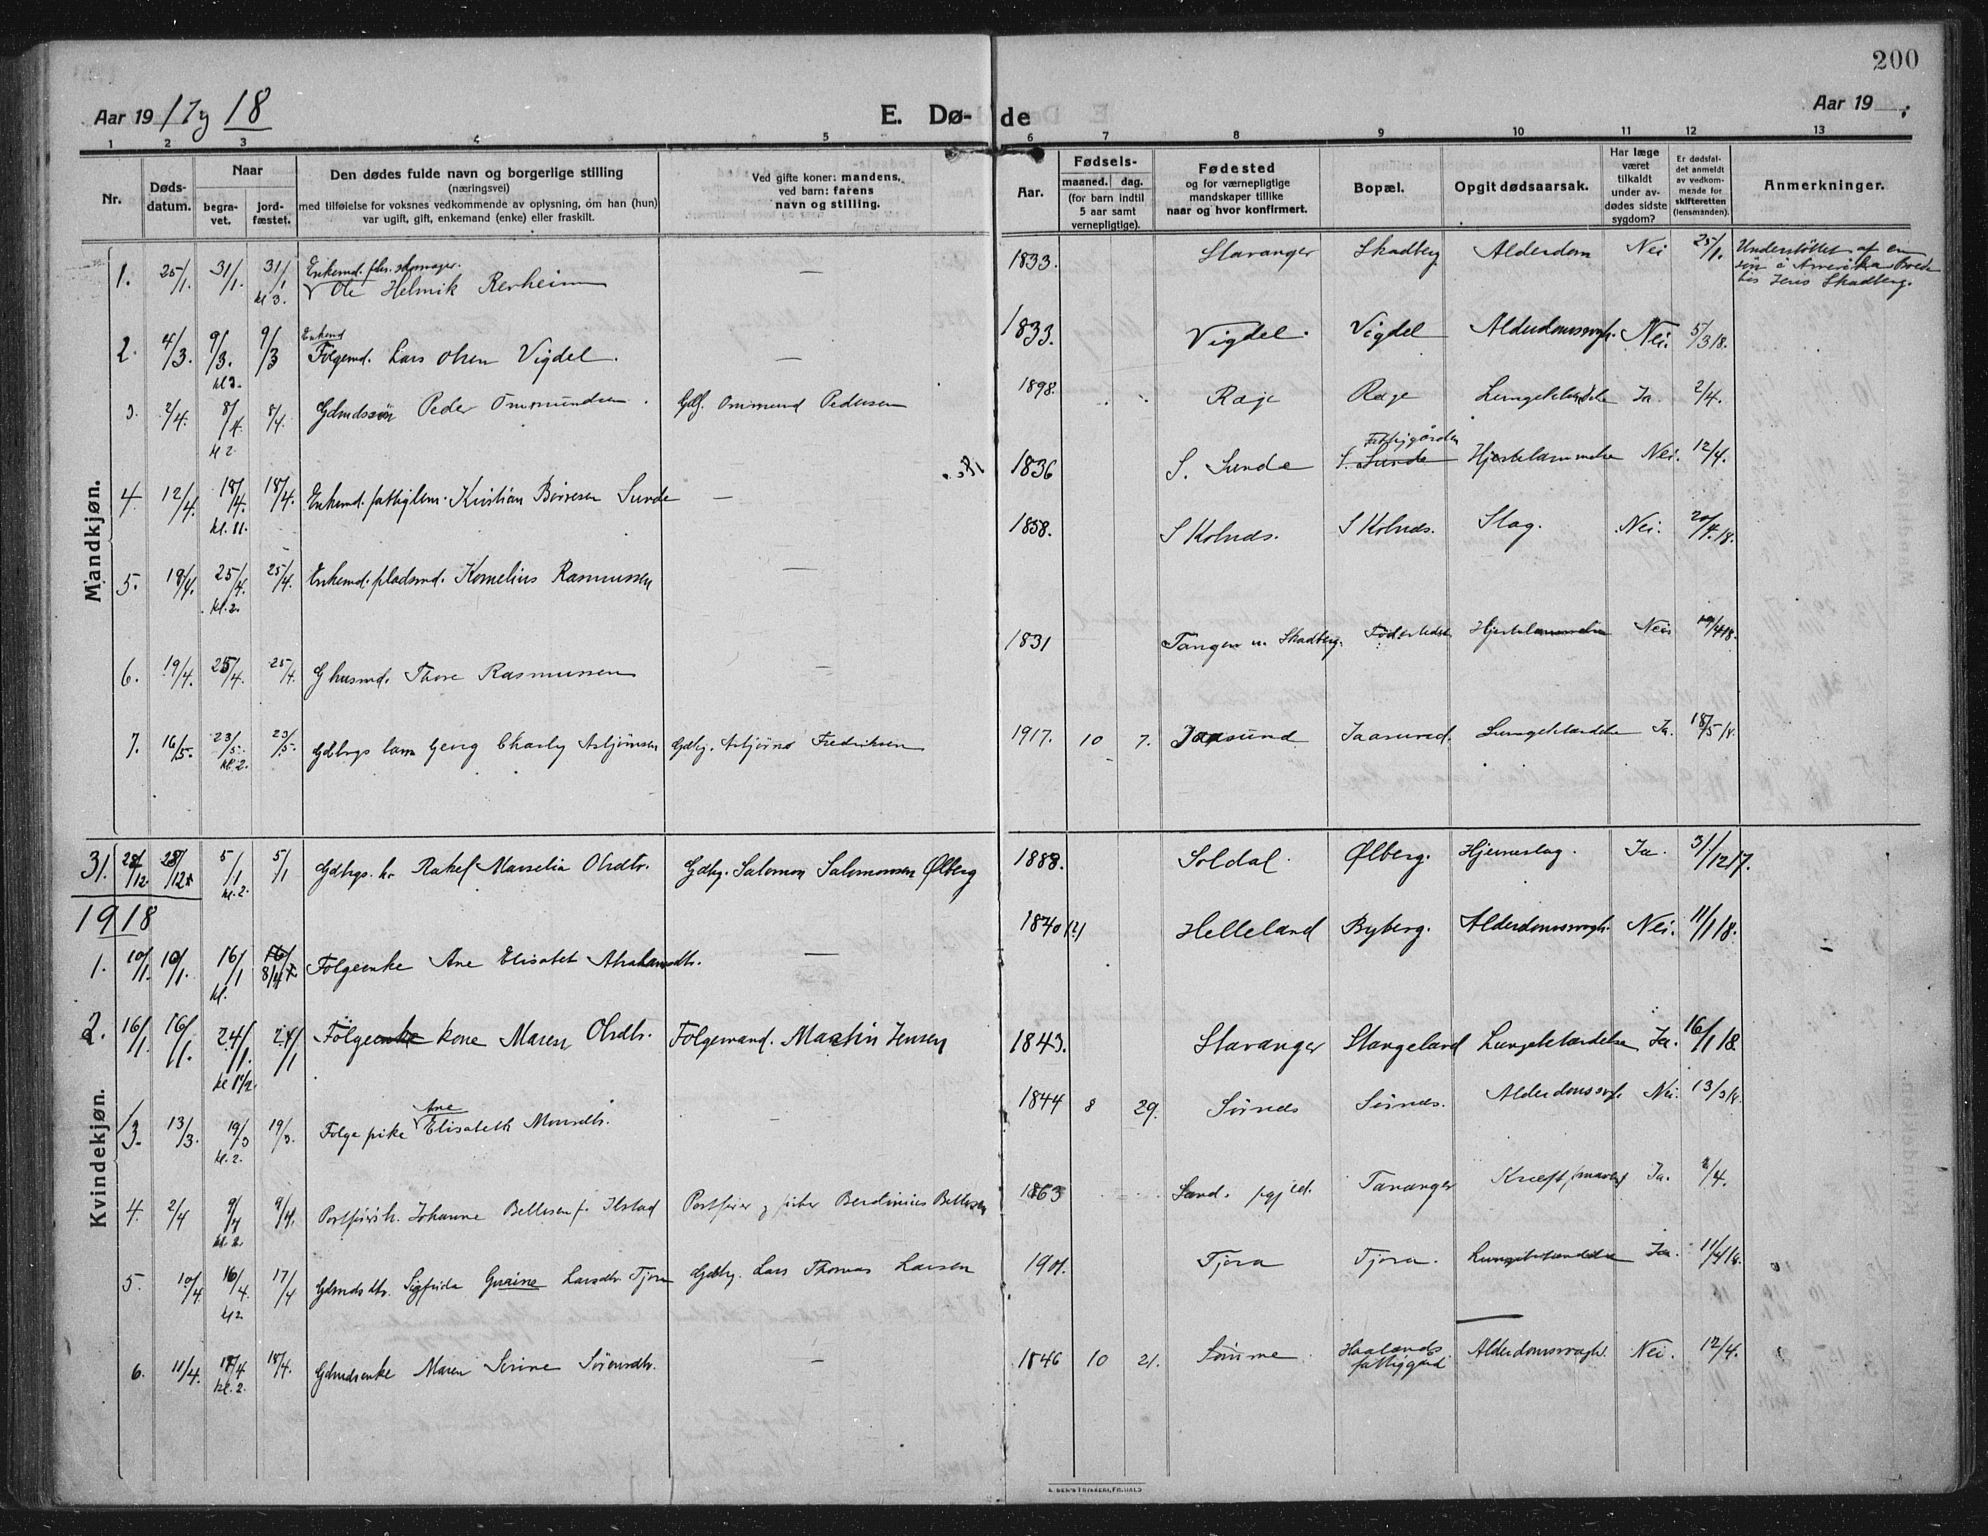 200
Aar 19 17 og 18
E. Dø- de
Aar 19
1 2 3 4 5 6 7 8 9 10 11 12 13
Nr.
Døds-
datum.
Naar
begra-
vet.
jord-
fæstet.
Den dødes fulde navn og borgerlige stilling
(næringsvei)
med tilføielse for voksnes vedkommende av oplysning, om han (hun)
var ugift, gift, enkemand (enke) eller fraskilt.
Ved gifte koner: mandens,
ved barn: farens
navn og stilling.
Aar.
Fødsels-
maaned. dag.
(for barn indtil
5 aar samt
vernepligtige).
Fødested
og for værnepligtige
mandskaper tillike
naar og hvor konfirmert.
Bopæl.
Opgit dødsaarsak.
Har læge
været
tilkaldt
under av-
dødes sidste
sygdom?
Er dødsfal-
det anmeldt
av vedkom-
mende for
skifteretten
(lensmanden).
Anmerkninger.
Mandkjøn.
1. 25/1. 31/1. 31/1 kl 3. Enkemd. fhv. skomager. Ole Helmik Revheim — 1833. Stavanger Skadberg Alderdom Nei 25/1. Understøttet af en søn i Amerika Boede hos Jens Skadberg.
2. 4/3. 9/3. kl 3. 9/3 Enkemd Følgemd. Lars Olsen Vigdel. — 1833. Vigdel. Vigdel Alderdomssvagh. Nei. 5/3 18.
3. 2/4. 8/4 kl 2 8/4. Gdmdssøn Peder Ommundsen. Gdbr. Ommund Pedersen 1898. Ræge Ræge Lungebetændelse Ja. 2/4.
4. 12/4. 18/4. kl. 11. 18/4. Enkemd. fattiglem. Kristian Børresen Sunde — 1836 S. Sunde S. Sunde Fattiggården Hjertelammelse Nei. 12/4.
5. 19/4. 25/4. kl. 2. 25/4. Enkemd. pladsmd. Kornelius Rasmussen — 1858. S Kolnes. S Kolnes. Slag. Nei. 20/4. 18.
6. 19/4. 25/4. 25/4. G husmd. Thore Rasmussen — 1831 Tangen u. Skadberg. Føderstedet Hjertelammelse Nei 18.
7. 16/5. 23/5. kl. 2. 23/5. Gdbrgs barn Georg Charly Asbjørnsen Gdbrg. Asbjørn Fredriksen 1917. 10 7. Jaasund Jaasund. Lungebetændelse Ja. 18/5 18.
Kvindekjøn.
31. 28/12 28/12 5/1 kl. 2. 5/1 Gdbrgs. h. Rakel Marselia Olsdtr. Gdbrg. Salomon Salomonsen Ølberg 1888. Soldal. Ølberg. Hjerneslag. Ja. 31/12 17.
1918
1. 10/1. 10/1. 16/1 kl. 16/1 8/4 Følgeenke Ane Elisabet Abrahamsdtr. — 1840 (?) Helleland Byberg. Alderdomssvagh. Nei. 11/1 18. —
2. 16/1. 16/1. 24/1. 24/1 Følgeenke kone Maren Olsdtr. Følgemand. Martin Jensen 1843. Stavanger Stangeland Lungebetændelse Ja. 16/1 18
3. 13/3. 19/3 kl. 2. 19/3. Følge pike Ane Elisabeth Monsdtr. — 1844 8 29. Sørnes Sørnes. Alderdomssv. Nei. 13/3 18.
4. 2/4 9/4 kl. 2 9/4. Johanne Bettesen f. Ilstad 1863 Sand. pgjeld. Tananger Kræft (mave) Ja. 2/4.
5. 10/4 16/4. kl 2 17/4 Gdmdsdtr. Sigfrida Guaine Larsdtr. Tjora Gdbrg. Lars Thomas Larsen 1901. Tjora Tjora. Lungebetændelse Ja. 11/4 18.
6. 11/4. 18/4 kl. 2. 18/4. Gdmdsenke Maren Serine Sørensdtr. — 1846 10 21. Sømme Haalands fattiggård Alderdomssvagh. Nei. 12/4.